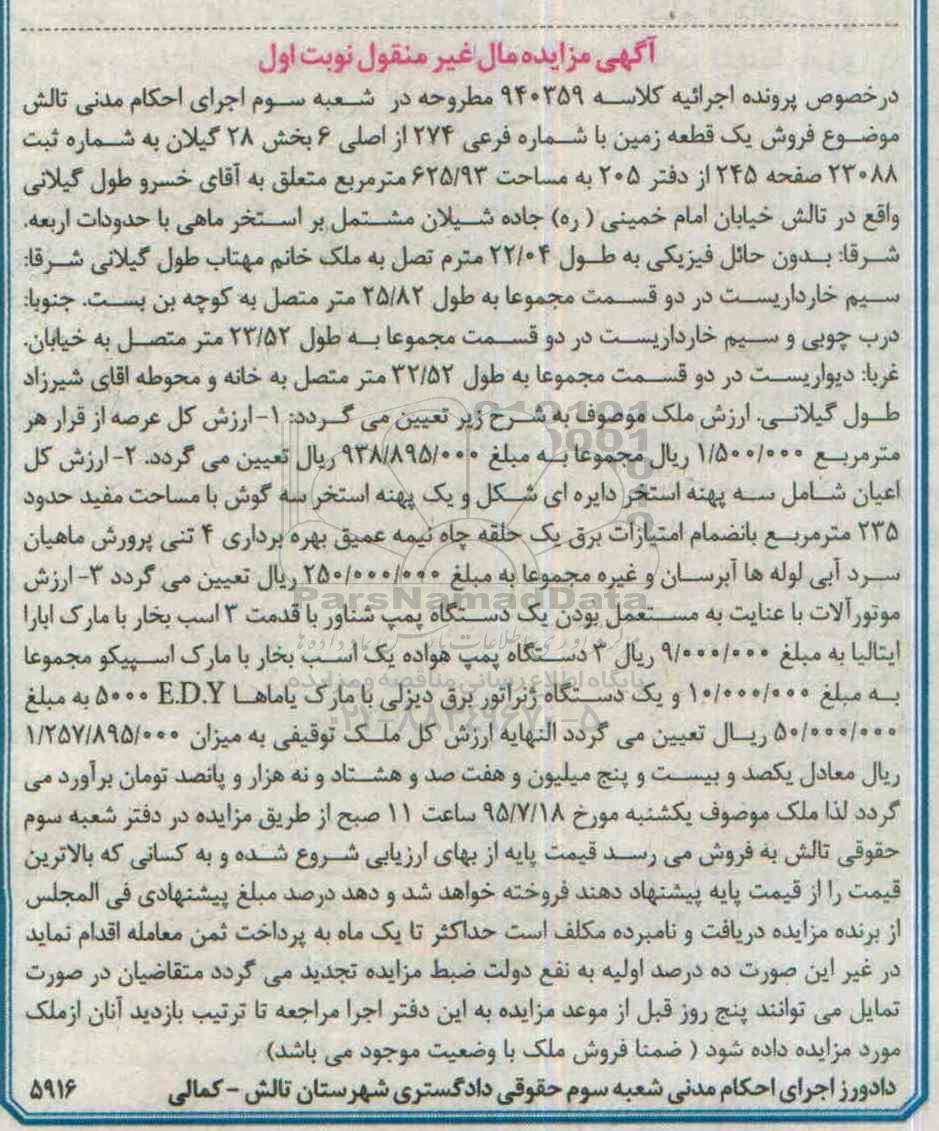 آگهی مزایده مال غیر منقول نوبت اول
درخصوص پرونده اجرائیه کلاسه ۹۴۰۳۵۹ مطروحه در شعبه سوم اجرای احکام مدنی تالش
موضوع فروش یک قطعه زمین با شماره فرعی ۲۷۴ از اصلی ۶ بخش ۲۸ گیلان به شماره ثبت
۲۳۰۸۸ صفحه ۲۴۵ از دفتر ۲۰۵ به مساحت ۶۲۵/۹۳ مترمربع متعلق به آقای خسرو طول گیلانی
واقع در تالش خیابان امام خمینی (ره) جاده شیلان مشتمل بر استخر ماهی با حدودات اربعه.
شرقا: بدون حائل فیزیکی به طول ۲۲/۰۴ مترم تصل به ملک خانم مهتاب طول گیلانی شرقا:
سیم خارداریست در دو قسمت مجموعا به طول ۲۵/۸۲ متر متصل به کوچه بن بست. جنوبا:
درب چوبی و سیم خارداریست در دو قسمت مجموعا به طول ۲۳/۵۲ متر متصل به خیابان.
غربا: دیواریست در دو قسمت مجموعا به طول ۳۲/۵۲ متر متصل به خانه و محوطه اقای شیرزاد
طول گیلانی. ارزش ملک موصوفا به شرح زیر تعیین می گردد: ۱- ارزش کل عرصه از قرار هر
مترمربع ۱/۵۰۰/۰۰۰ ریال مجموعا به مبلغ ۹۳۸/۸۹۵/۰۰۰ ریال تعیین می گردد. ۲- ارزش کل
اعیان شامل سه پهنه استخر دایره ای شکل و یک پهنه استخر سه گوش با مساحت مفید حدود
۲۳۵ مترمربع بانضمام امتیازات برق یک حلقه چاه نیمه عمیق بهره برداری ۴ تنی پرورش ماهیان
سرد آبی لوله ها آبرسان و غیره مجموعا به مبلغ ۲۵۰/۰۰۰/۰۰۰ ریال تعیین می گردد ۳- ارزش
موتورآلات با عنایت به مستعمل بودن یک دستگاه پمپ شناور با قدمت ۳ اسب بخار با مارک ابارا
ایتالیا به مبلغ ۹/۰۰۰/۰۰۰ ریال ۳ دستگاه پمپ هواده یک اسب بخار با مارک اسپیکو مجموعا
به مبلغ ۱۰/۰۰۰/۰۰۰ و یک دستگاه ژنراتور برق دیزلی با مارک یاماها E.D.Y ۵۰۰۰ به مبلغ
۵۰/۰۰۰/۰۰۰ ریال تعیین می گردد النهایه ارزش کل ملک توقیفی به میزان ۱/۲۵۷/۸۹۵/۰۰۰
ریال معادل یکصد و بیست و پنج میلیون و هفت صد و هشتاد و نه هزار و پانصد تومان برآورد می
گردد لذا ملک موصوف یکشنبه مورخ ۹۵/۷/۱۸ ساعت ۱۱ صبح از طریق مزایده در دفتر شعبه سوم
حقوقی تالش به فروش می رسد قیمت پایه از بهای ارزیابی شروع شده و به کسانی که بالاترین
قیمت را از قیمت پایه پیشنهاد دهند فروخته خواهد شد و دهد درصد مبلغ پیشنهادی فی المجلس
از برنده مزایده دریافت و نامبرده مکلف است حداکثر تا یک ماه به پرداخت ثمن معامله اقدام نماید
در غیر این صورت ده درصد اولیه به نفع دولت ضبط مزایده تجدید می گردد متقاضیان در صورت
تمایل می توانند پنج روز قبل از موعد مزایده به این دفتر اجرا مراجعه تا ترتیب بازدید آنان ازملک
مورد مزایده داده شود ( ضمنا فروش ملک با وضعیت موجود می باشد)
دادورز اجرای احکام مدنی شعبه سوم حقوقی دادگستری شهرستان تالش - کمالی ۵۹۱۶
ParsNamadData
پایگاه اطلاع رسانی مناقصه و مزایده